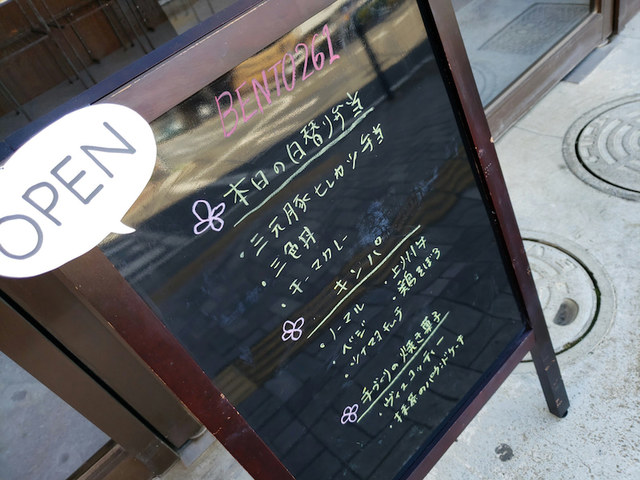 OPEN
BENTO261
本日の日替り弁当
・三元豚ヒレカツ弁当
・三色丼
・キーマカレー
キンパ
・ノーマル
・ベジ
・ツナマヨキムチ
・鶏そぼろ
手づくりの焼き菓子
・ヴィスコッティー
・抹茶のパウンドケーキ